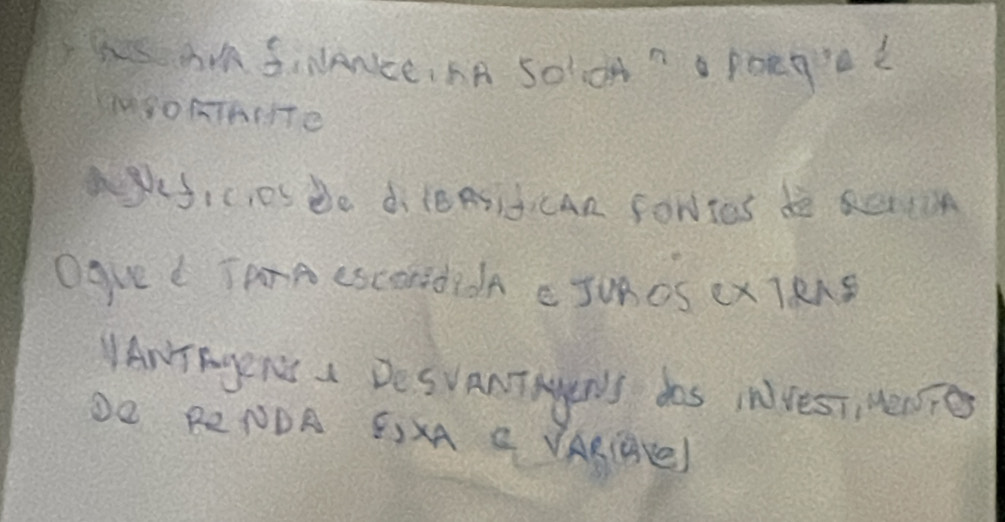 FINANCEIRA SOLIDA" e PORQUE é
IMPORTANTE
BENEFICIOS De diVERSIFICAR FONTES de RENDA
OQUE é TAXA escondida e JUROS EXTRAS
VANTAGENS e DESVANTAGENS dos INVESTIMENTOS
De RENDA FIXA e VARIAVel